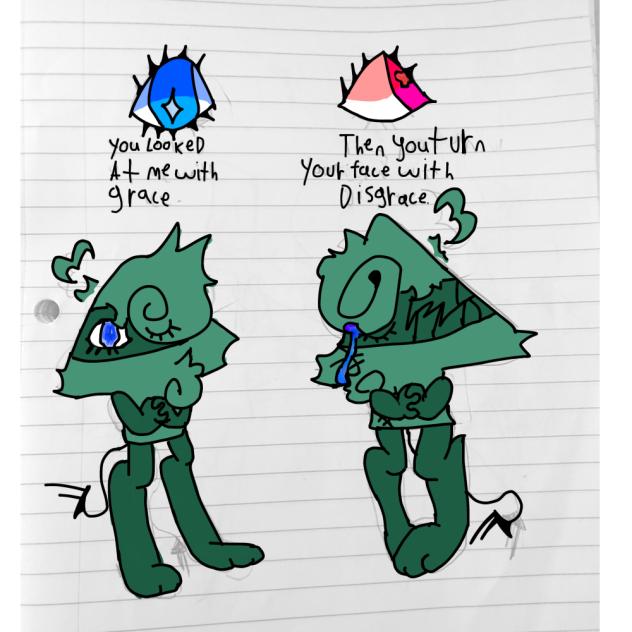 You LOOKED
At me with
grace
Then you turn
Your face with
Disgrace.